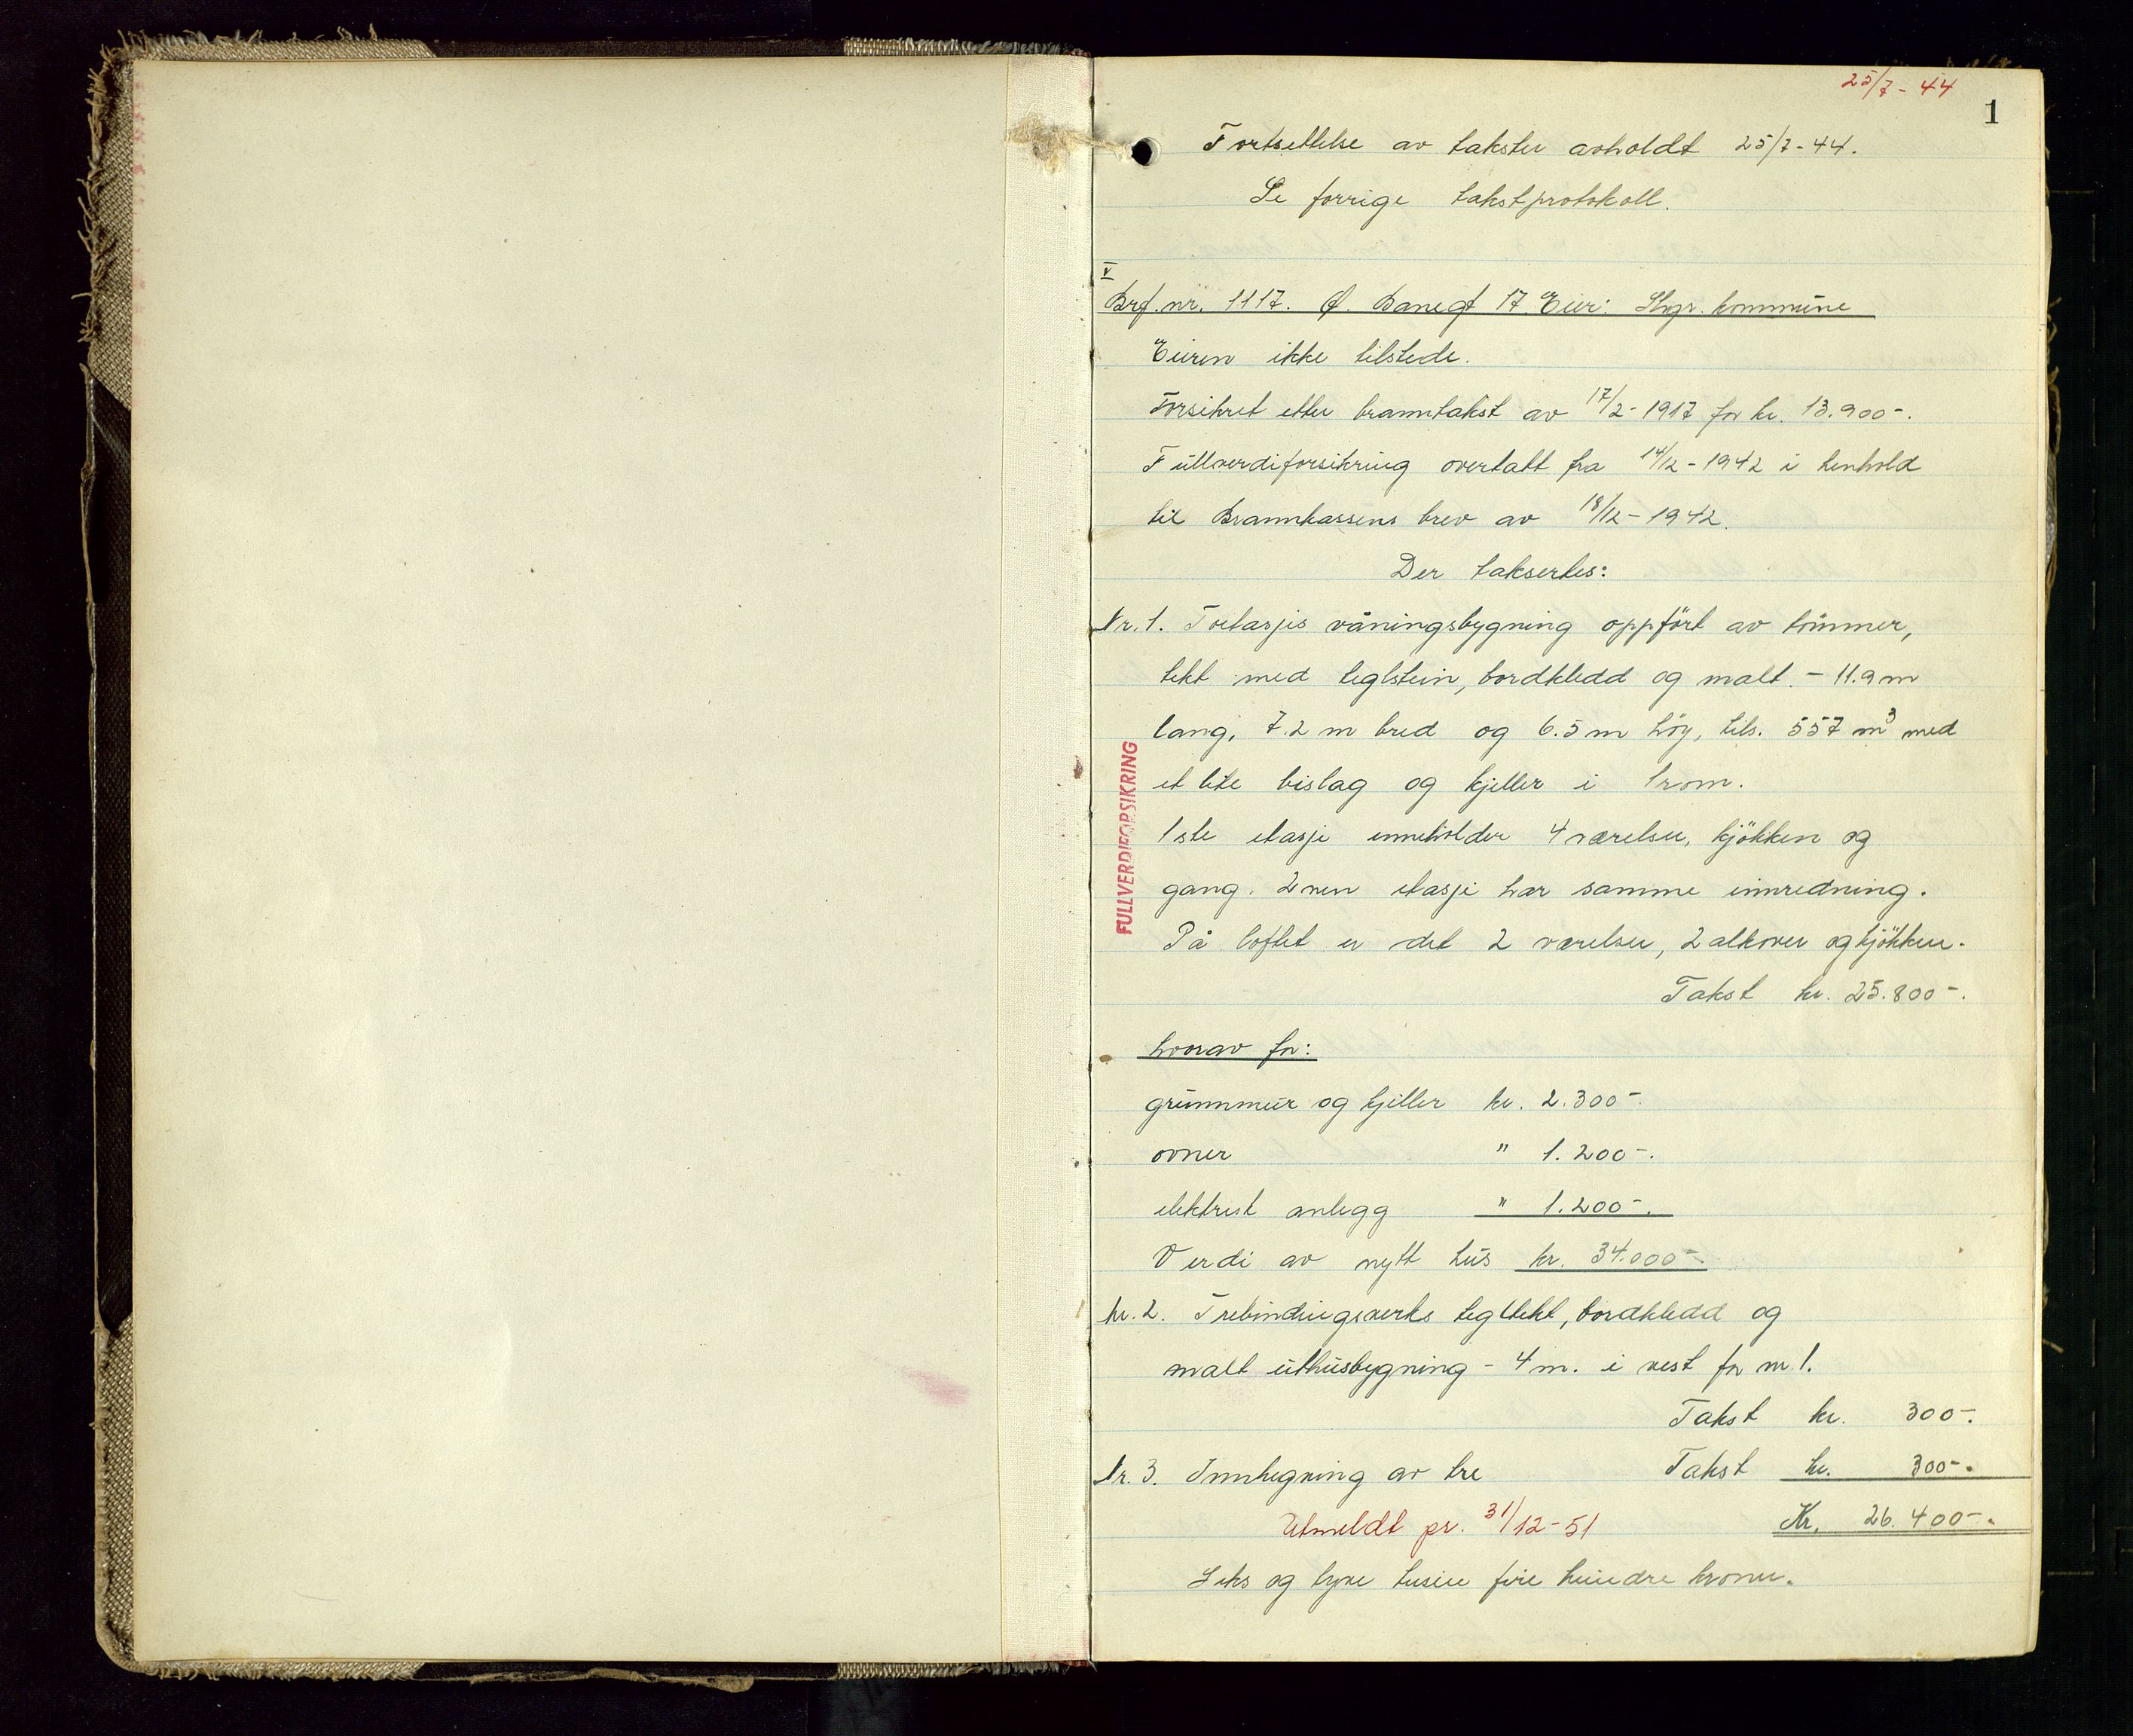 25/7- 44
1
Fortsettelse av takster avholdt 25/7-44.
Se forrige takstprotokoll.
V
Brf.nr. 1117. Ø. Banegt 17. Eier: Stvgr. kommune
Eieren ikke tilstede.
Forsikret etter branntakst av 17/2-1917 for kr. 13.900-.
Fullverdiforsikring overtatt fra 14/12-1942 i henhold
til Brannkassens brev av 18/12-1942.
Der taksertes:
Nr. 1. Toetasjes våningsbygning oppført av tømmer,
tekt med teglstein, bordkledd og malt. - 11.9 m
lang, 7.2 m bred og 6.5 m høy, tils. 557 m3 med
et lite bislag og kjeller i 1 rom.
1ste etasje inneholder 4 værelser, kjøkken og
gang. 2nen etasje har samme innredning.
På loftet er det 2 værelser, 2 alkover og kjøkken.
FULLVERDIFORSIKRING
Takst kr. 25.800-.
hvorav for:
grunnmur og kjeller kr. 2.300-.
ovner " 1.200-.
elektrisk anlegg " 1.200-.
Verdi av nytt hus kr. 34.000-
Nr. 2. Trebindingsverks tegltekt, bordkledd og
malt uthusbygning - 4 m. i vest for nr 1.
Takst kr. 300-.
Nr. 3. Innhegning av tre Takst kr. 300-.
Utmeldt pr. 31/12-51 Kr. 26.400-.
Seks og tyve tusen fire hundre kroner.